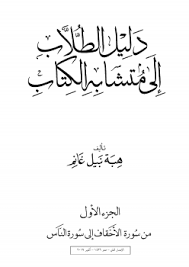 دَلِيلُ الطُّلَّابِ
إِلَى مُتَشَابِهِ الكِتَابِ
تأليف
هبة نبيل غانم
الجزء الأول
من سورة الأحقاف إلى سورة الناس